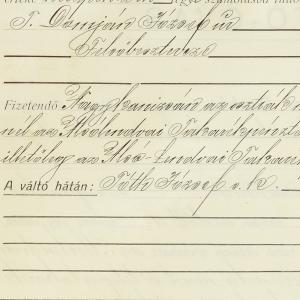 T. Damján József úr
Felsőbesztercze
Fizetendő Nagykanizsán az osztrák
nél az Alsólendvai Takarékpénztá
illetőleg az Alsó-Lendvai Takaré
A váltó hátán: Tóth József s. k.